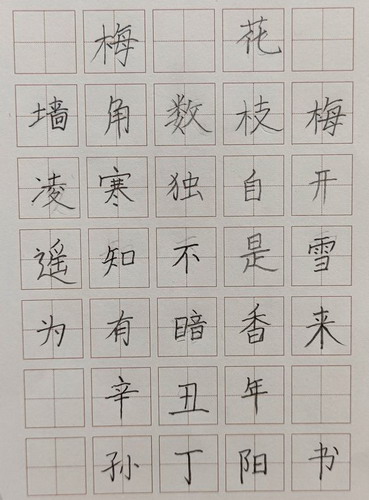 梅花
墙角数枝梅
凌寒独自开
遥知不是雪
为有暗香来
辛丑年
孙丁阳书